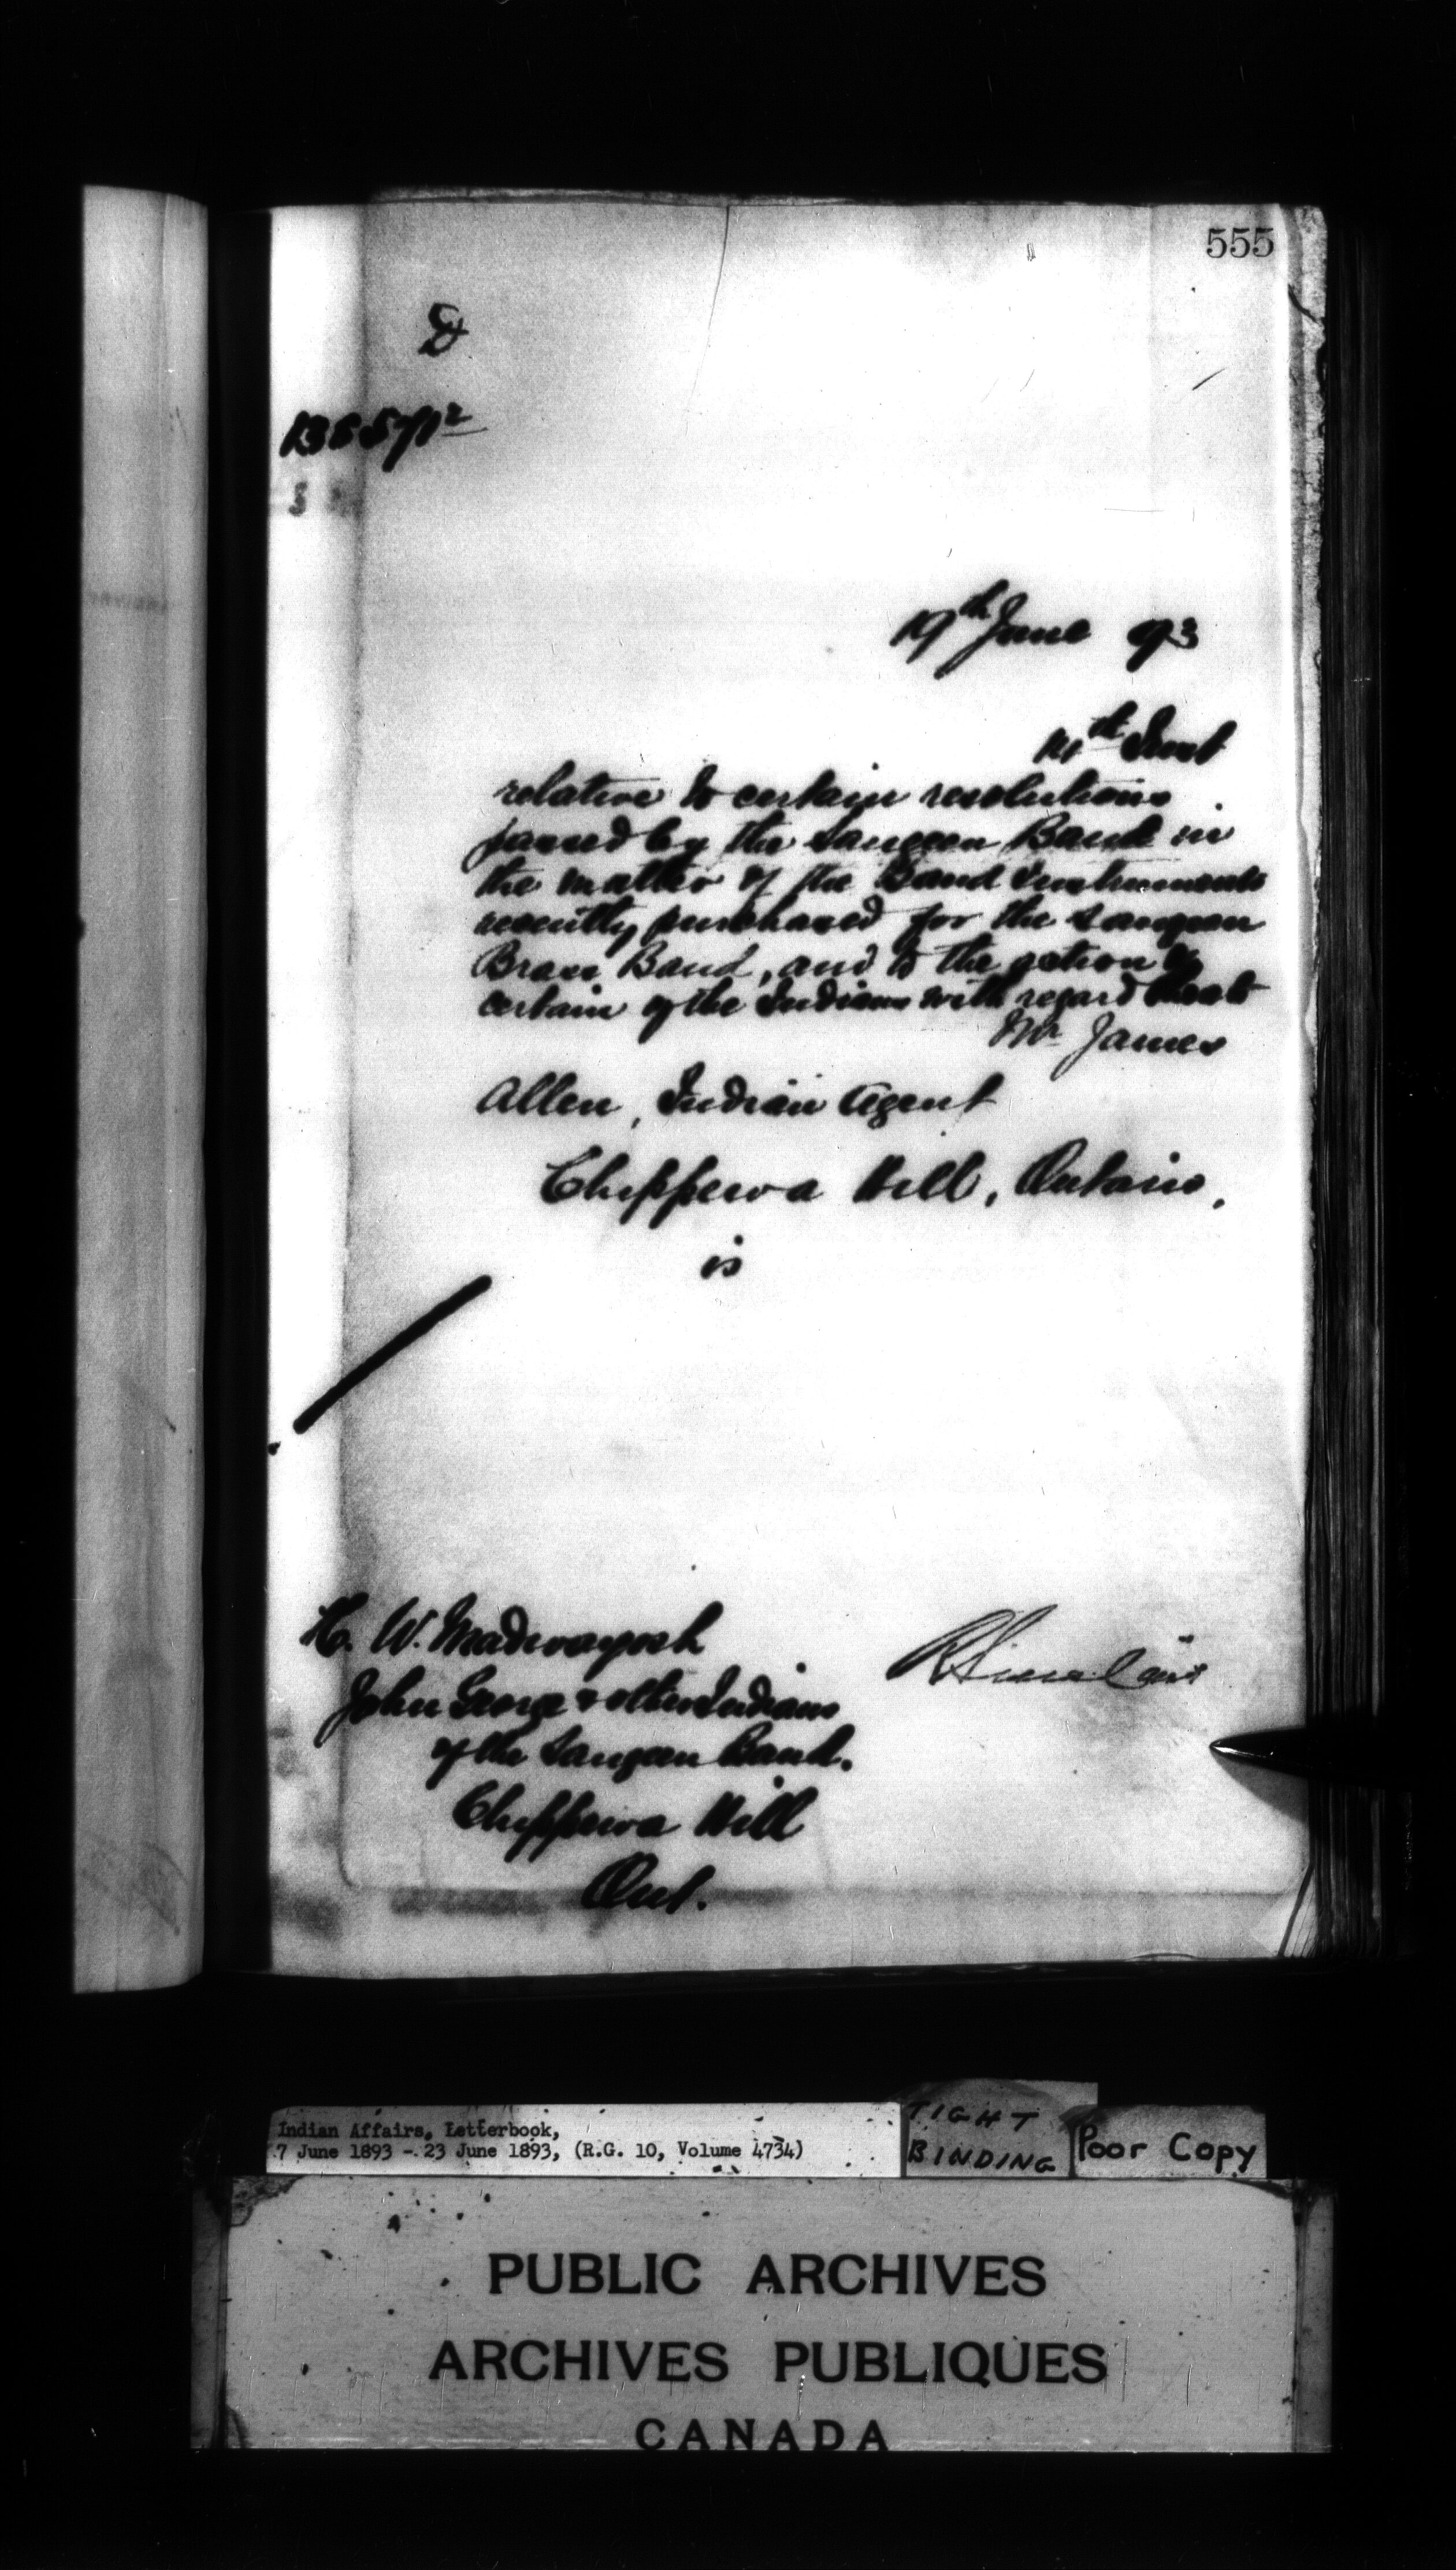 555
D
19th June 93
14th Inst
relative to certain resolutions
passed by the Saugeen Band in
the matter of the Band Instruments
recently purchased for the Saugeen
Brass Band, and to the action of
certain of the Indians with regard thereto
Mr James
Allen, Indian Agent
Chippewa Hill, Ontario,
is
H. W. Madwayosh
John George & other Indians
of the Saugeen Band.
Chippewa Hill
Ont.
R Sinclair
Indian Affairs, Letterbook,
7 June 1893 - 23 June 1893, (R.G. 10, Volume 4734)
TIGHT
BINDING
Poor Copy
PUBLIC ARCHIVES
ARCHIVES PUBLIQUES
CANADA